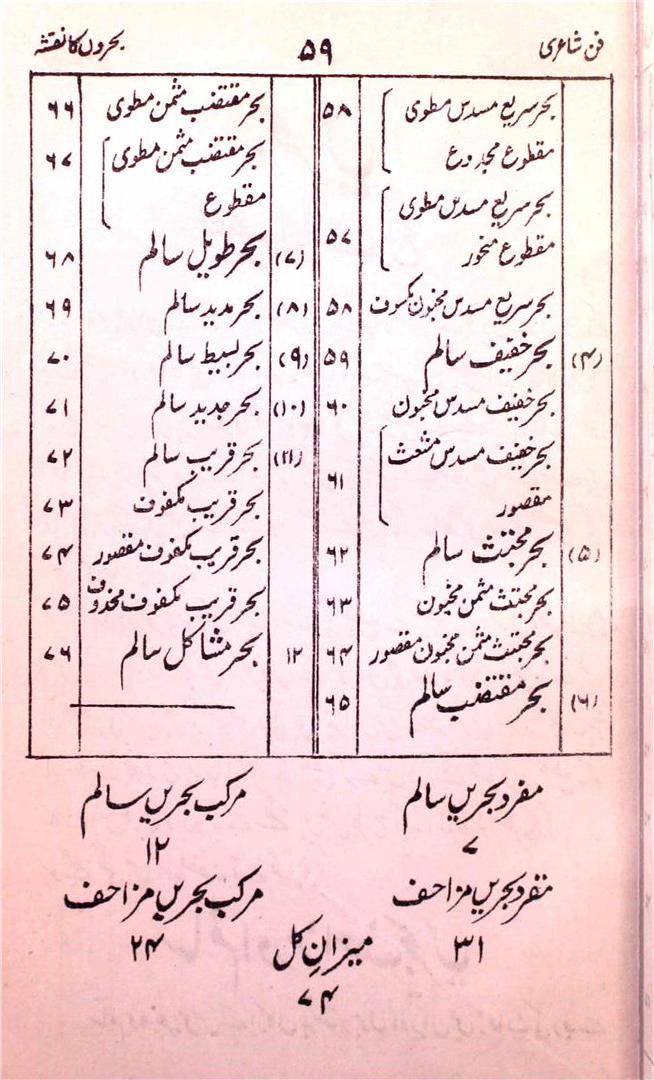 فن شاعری ۵۹ بحروں کا نقشہ
بحر سریع مسدس مطوی ۵۸
مقطوع مجدوع
بحر سریع مسدس مطوی
مقطوع منحور ۵۷
بحر سریع مسدس مخبون مکسوف ۵۸
(۴) بحر خفیف سالم ۵۹
بحر خفیف مسدس مخبون ۶۰
بحر خفیف مسدس مشعث ۶۱
مقصور
(۵) بحر مجتث سالم ۶۲
بحر مجتث مثمن مخبون ۶۳
بحر مجتث مثمن مخبون مقصور ۶۴
(۶) بحر مقتضب سالم ۶۵
بحر مقتضب مثمن مطوی ۶۶
بحر مقتضب مثمن مطوی ۶۷
مقطوع
(۷) بحر طویل سالم ۶۸
(۸) بحر مدید سالم ۶۹
(۹) بحر بسیط سالم ۷۰
(۱۰) بحر جدید سالم ۷۱
(۱۱) بحر قریب سالم ۷۲
بحر قریب مکفوف ۷۳
بحر قریب مکفوف مقصور ۷۴
بحر قریب مکفوف محذوف ۷۵
۱۲ بحر مشاکل سالم ۷۶
مفرد بحریں سالم
۷
مرکب بحریں سالم
۱۲
مفرد بحریں مزاحف
۳۱
مرکب بحریں مزاحف
۲۴
میزانِ کل
۷۴